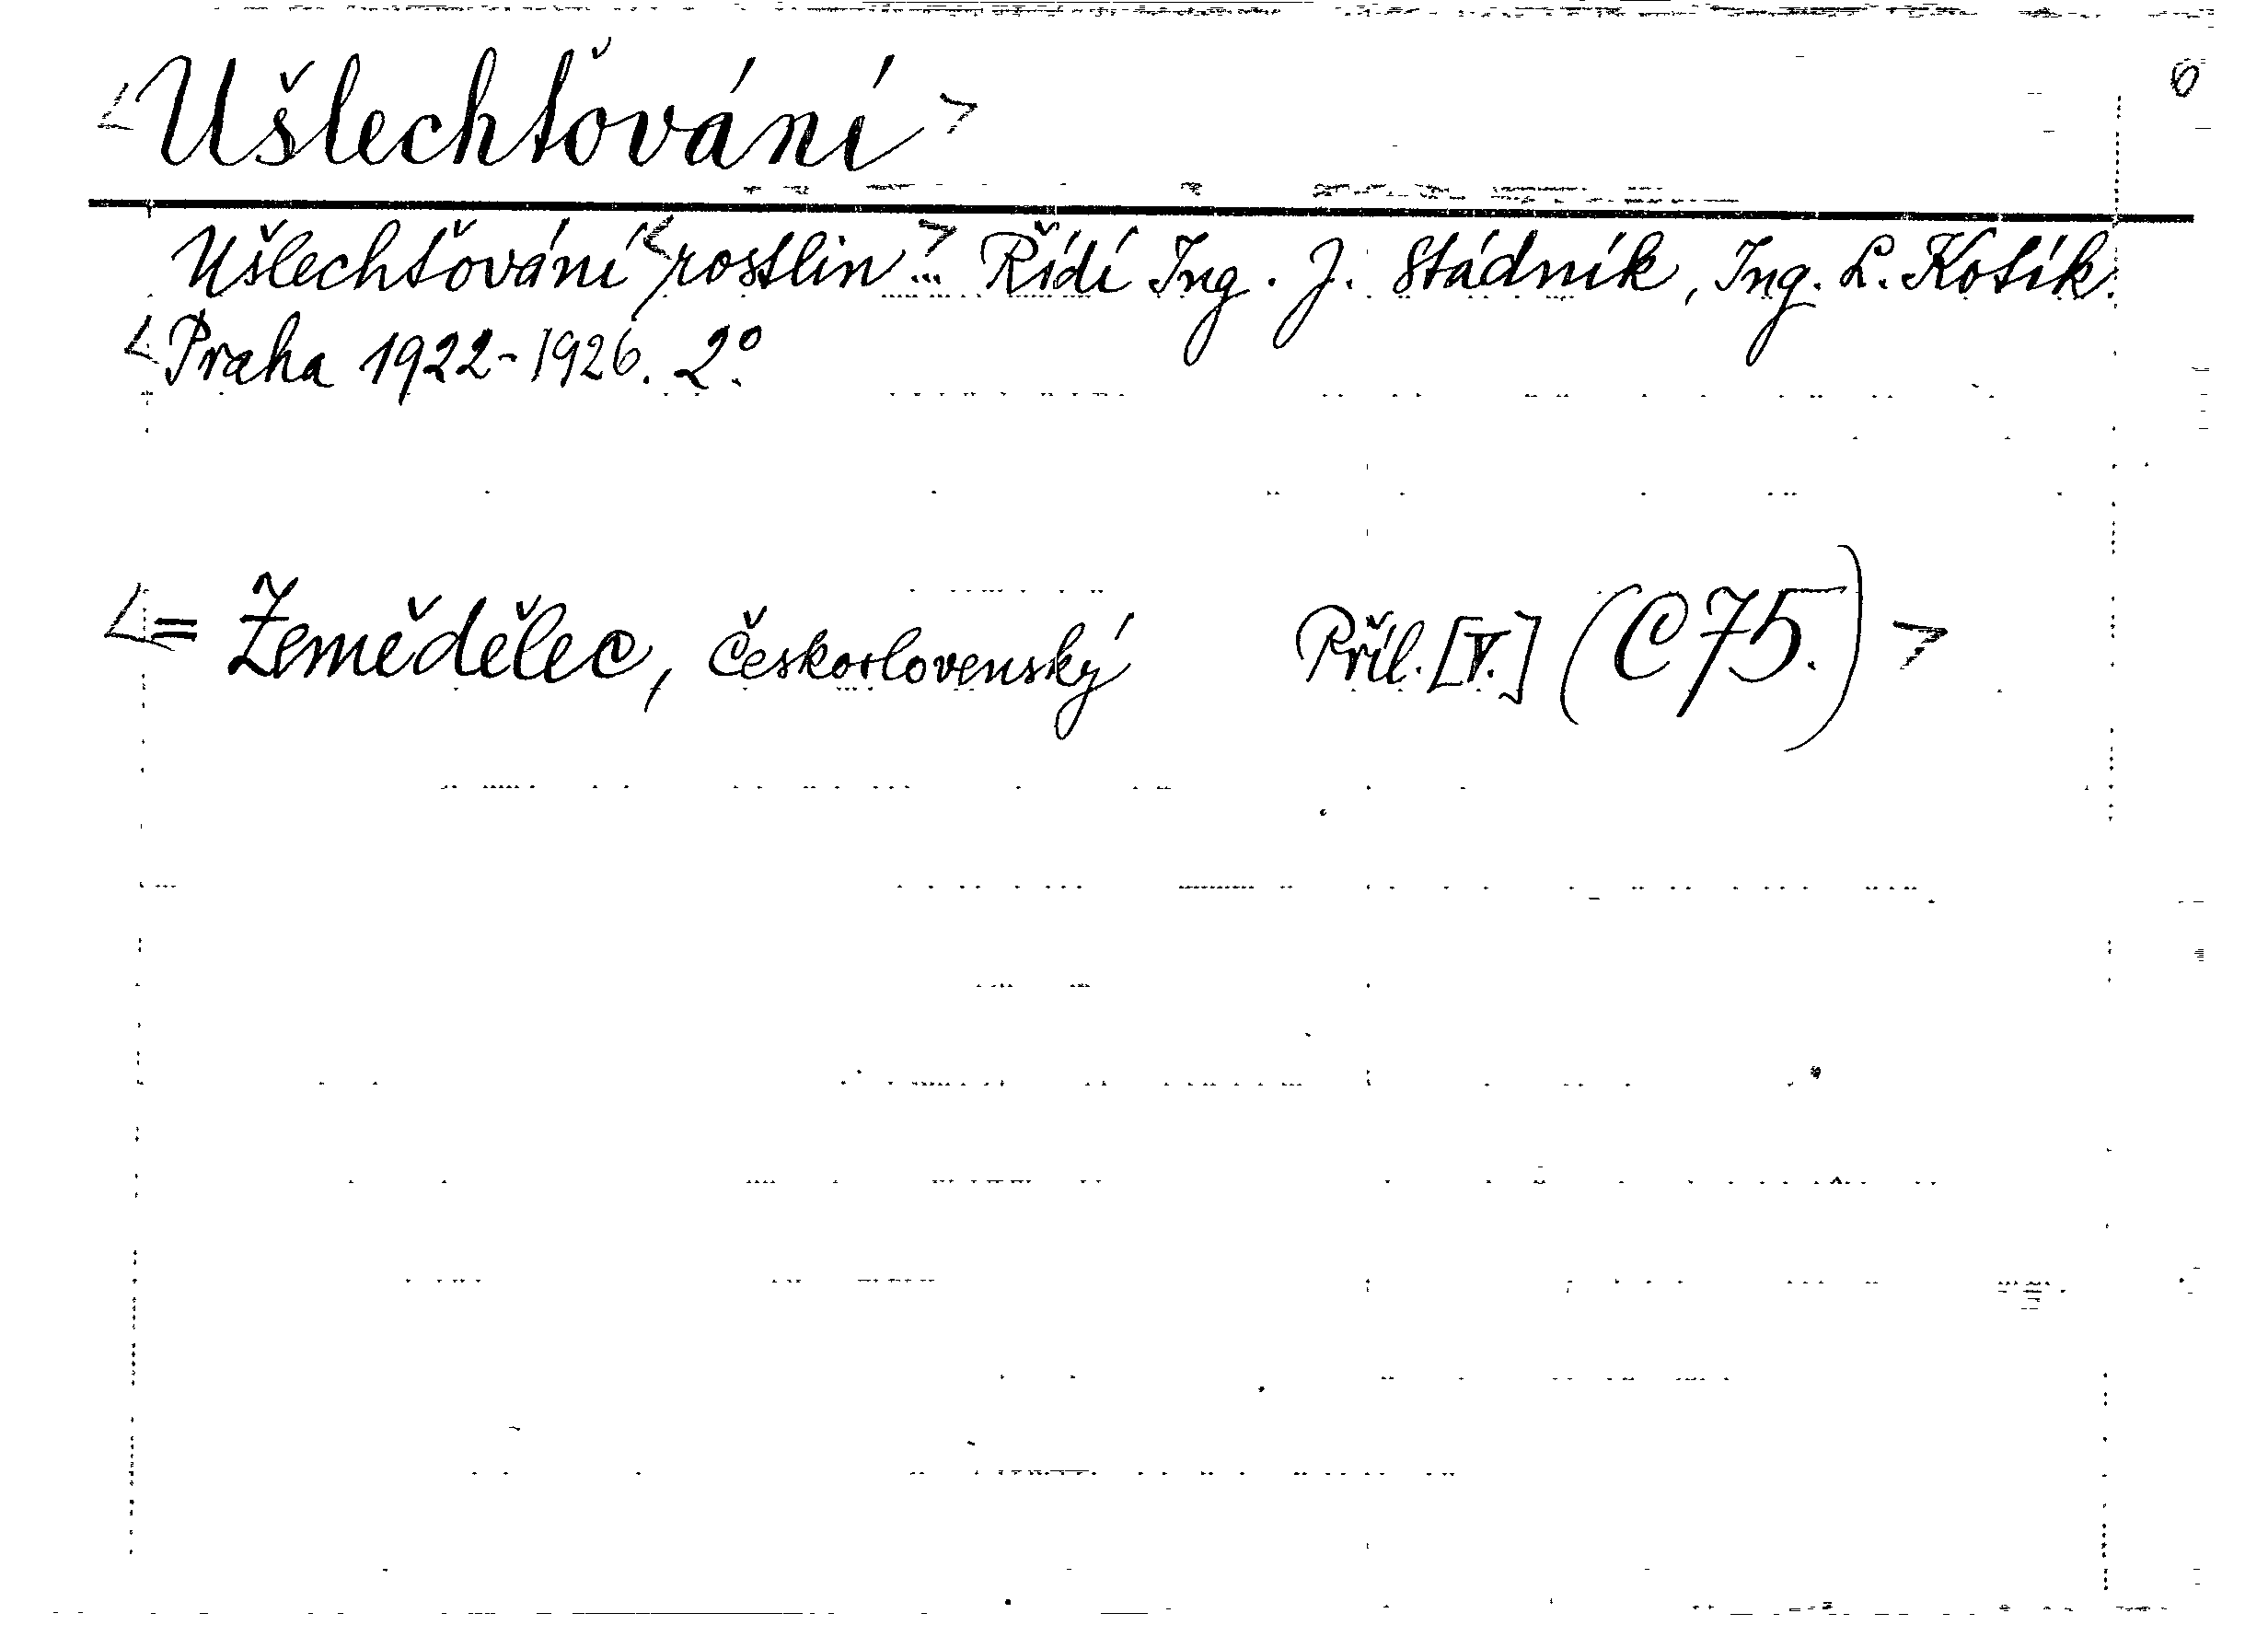 <Ušlechťování> 6
Ušlechťování <rostlin...> Řídí Ing. J. Stádník, Ing. L. Kosík.
<Praha 1922-1926. 2°.
<= Zemědělec, Československý Příl. [V.] (C 75.)>